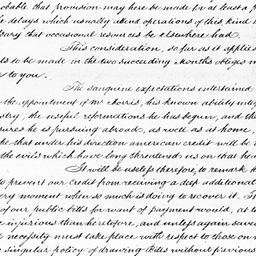 obable that provision may here be made for at least a p
e delays which usually attend operations of this kind a
ssary that occasional resources be elsewhere had.
This consideration, so far as it applies
ls to be made in the two succeeding Months obliges m
r to you.
The sanguine expectations entertained
the appointment of Mr Morris, his known ability integ
stry, the useful reformations he has begun, and the
sures he is pursuing abroad, as well as at home,
he that under his direction american credit will be r
the evils which have long threatened us on that hea
It will be useless therefore, to remark h
to prevent our Credit from receiving a deep additional
very moment when so much is doing to recover it. Th
of our public bills for want of payment would, at t
e injurious than heretofore, and unless again saved
necessity must take place with respect to those on
singular policy of drawing Bills without previous